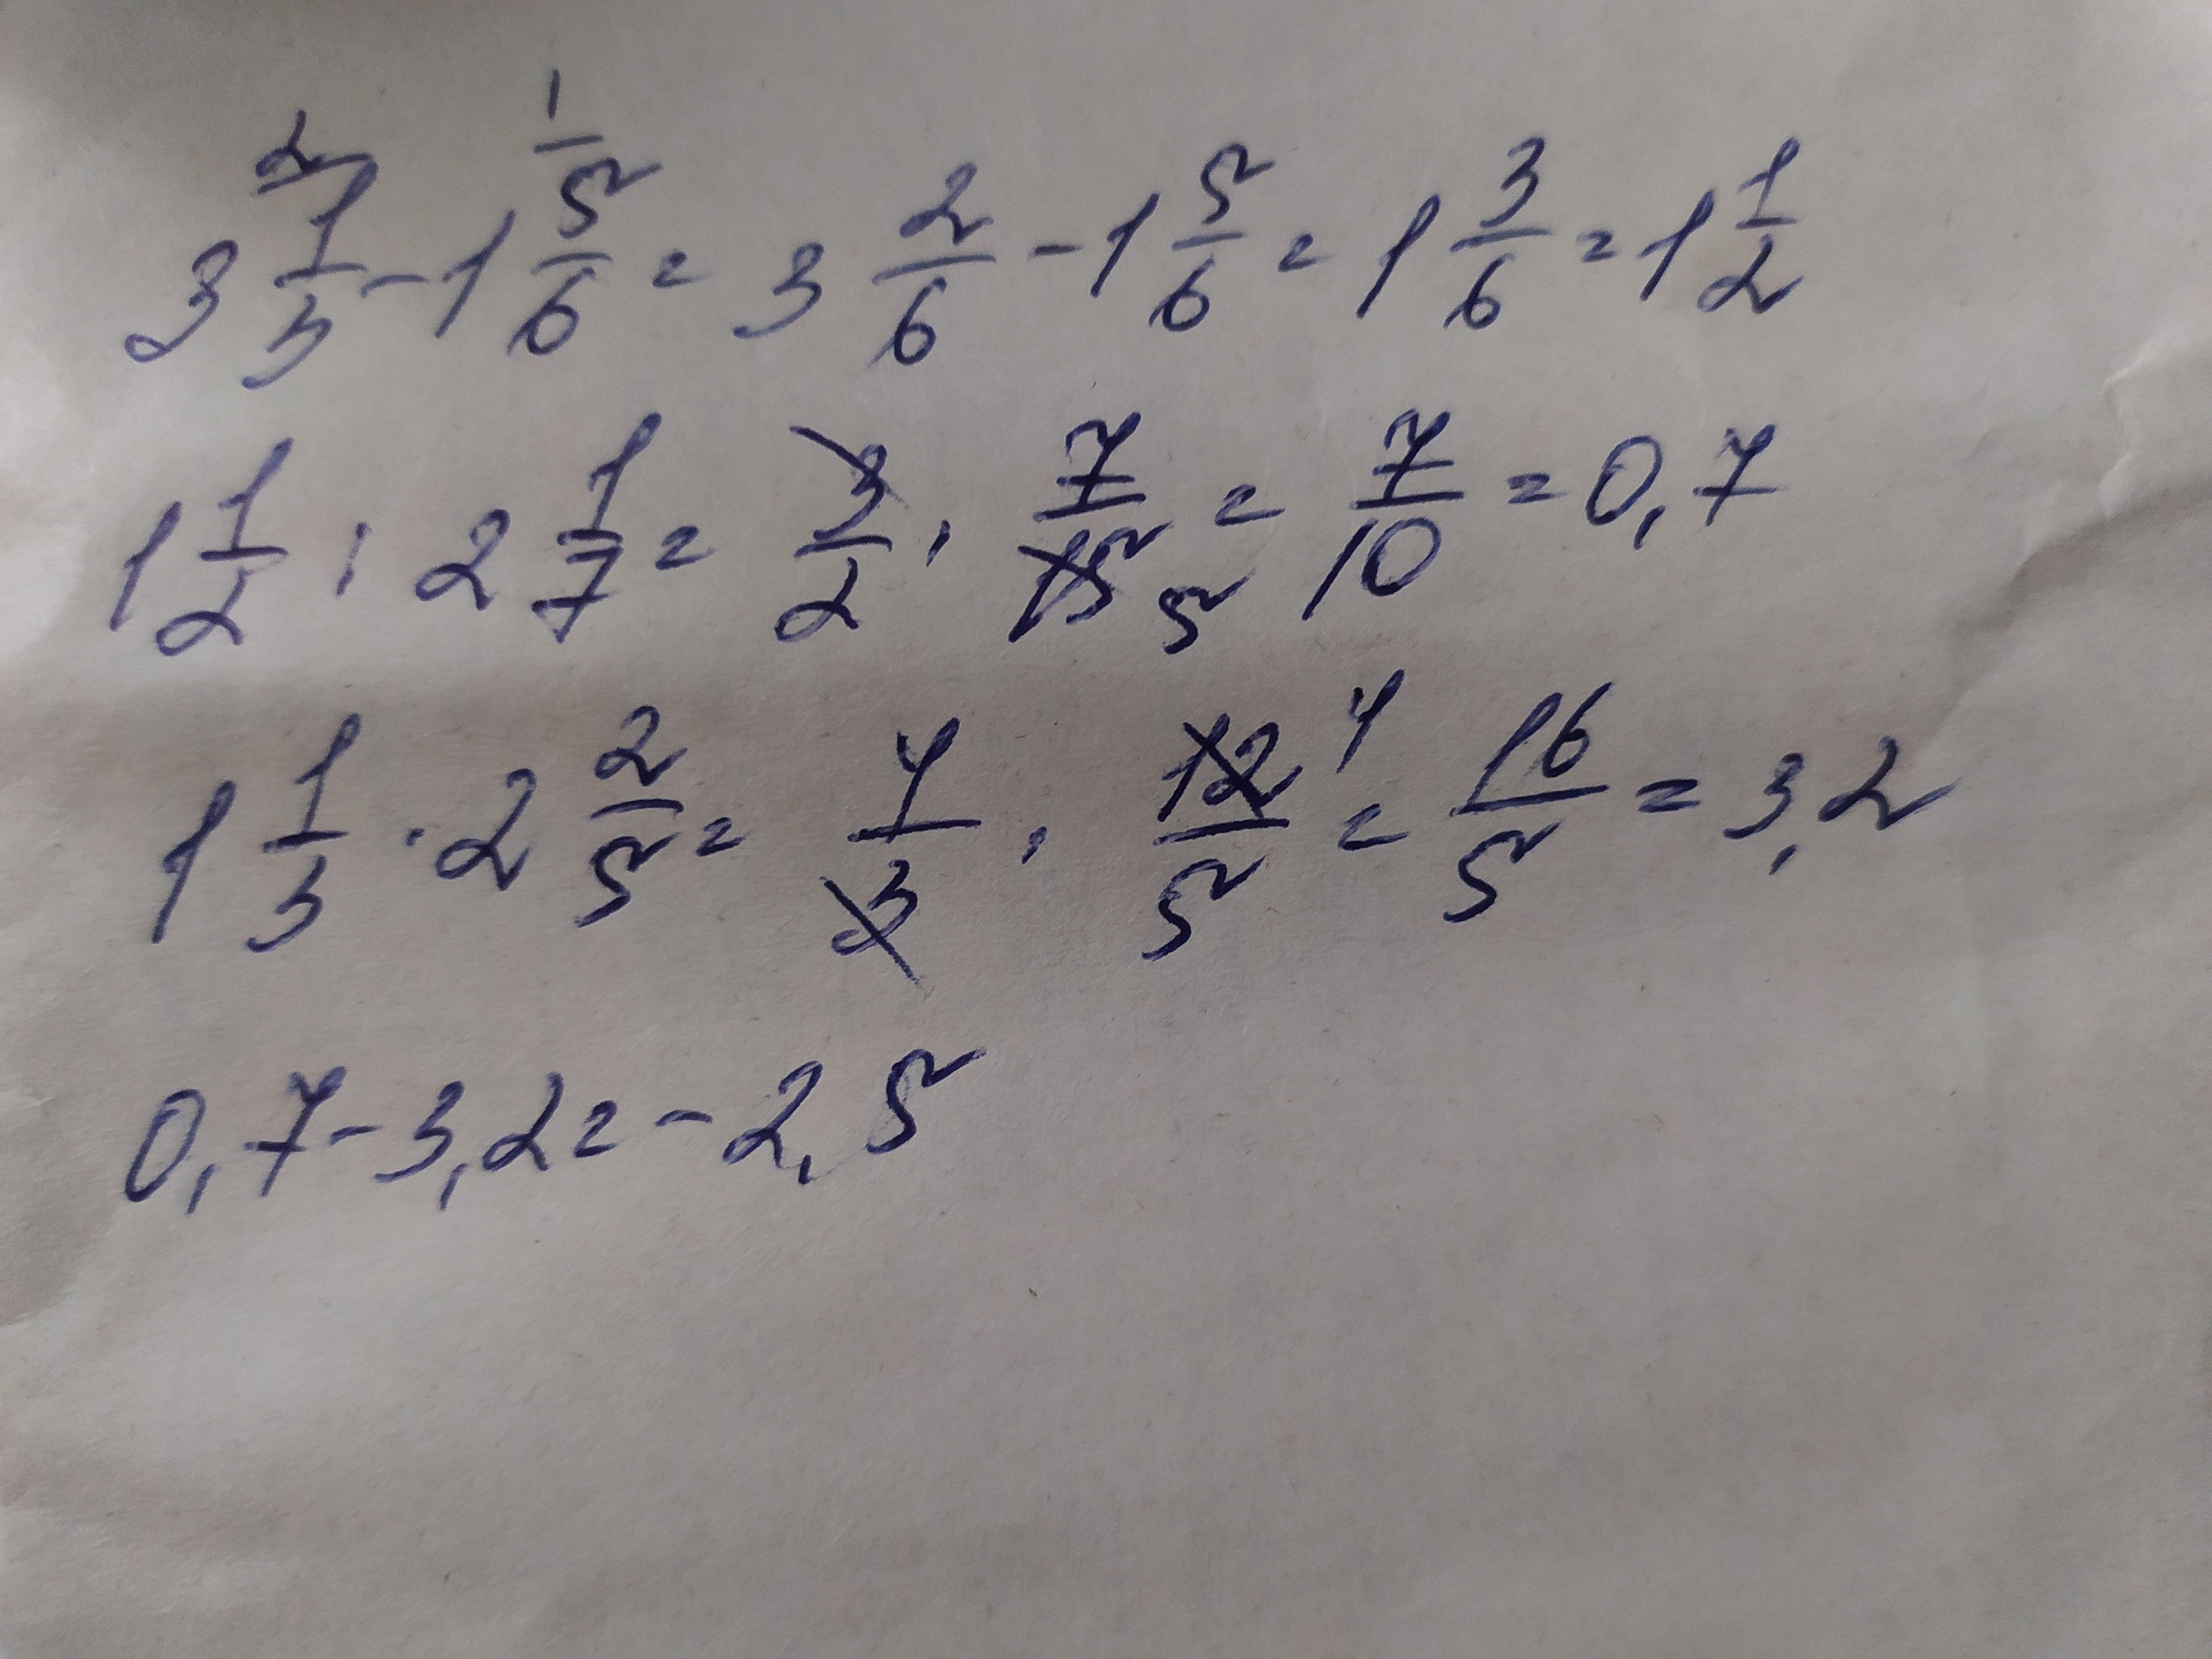 3 2/ 1/3 - 1 1/ 5/6 = 3 2/6 - 1 5/6 = 1 3/6 = 1 1/2
1 1/2 : 2 1/7 = 3/2 · 7/15 5 = 7/10 = 0,7
1 1/3 · 2 2/5 = 4/3 · 12/5 4 = 16/5 = 3,2
0,7 - 3,2 = - 2,5